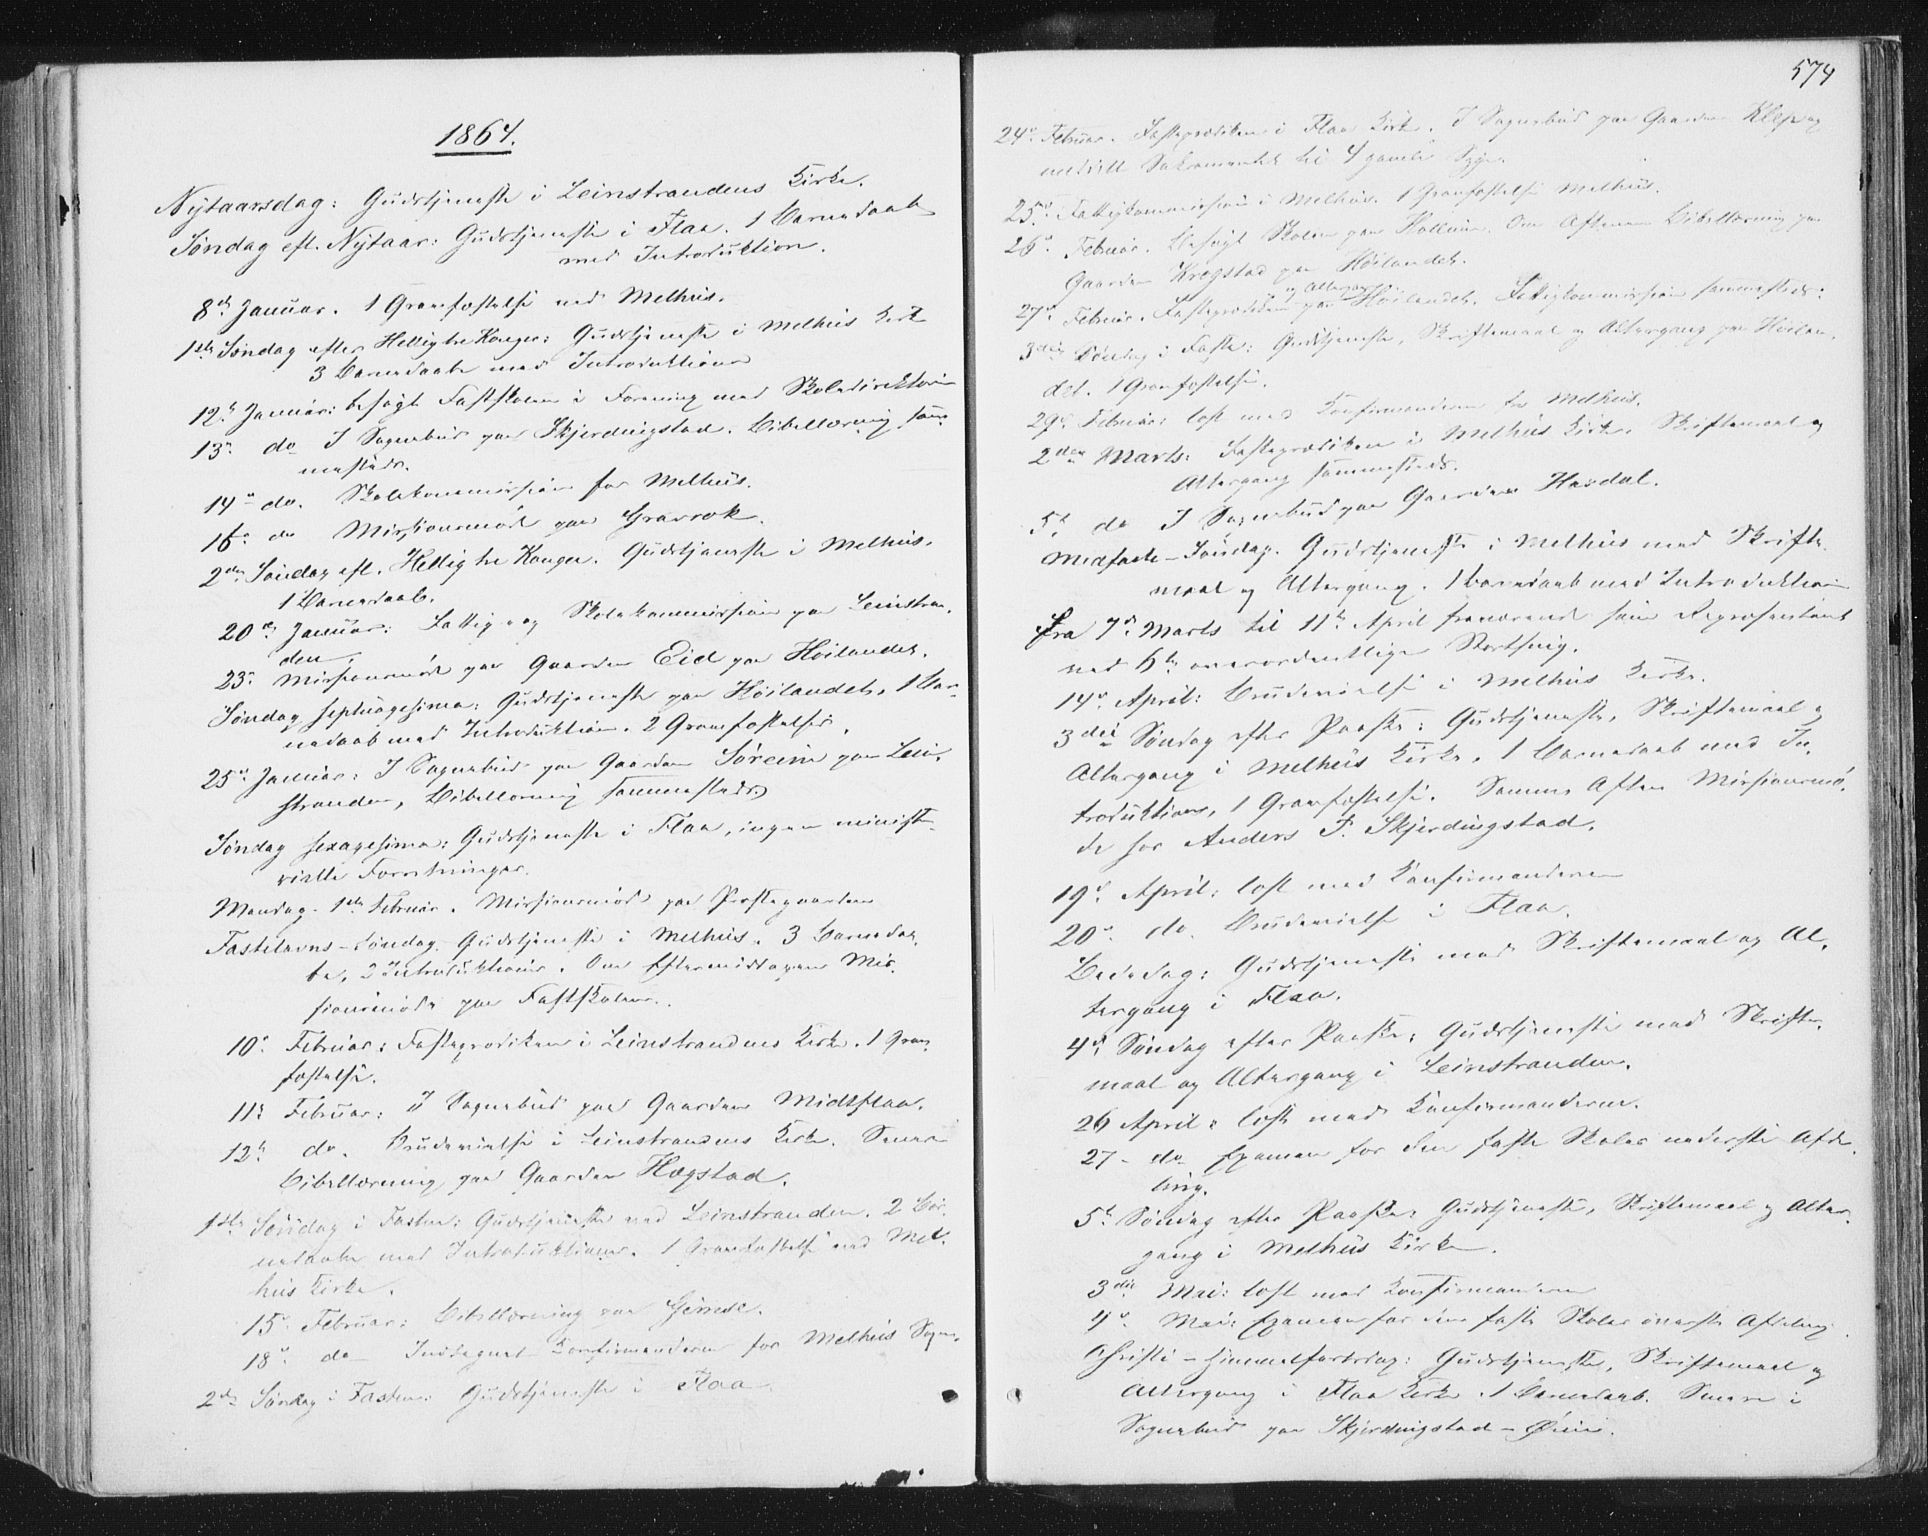 1864.
Nytaarsdag: Gudstjeneste i Leinstrandens Kirke.
Søndag eft. Nytaar: Gudstjeneste i Flaa. 1 Barnedaab
med Introduktion.
8de Januar. 1 Gravfæstelse ved Melhus.
1ste Søndag efter Hellig tre Konger: Gudstjeneste i Melhus Kirke
3 Barnedaabe med Introduktioner
12te Januar: besøgt Fastskolen i Forening med Skoledirektøren
13de do I Sognebud paa Skjerdingstad. Bibellæsning sam-
mesteds.
14de do. Skolekommission for Melhus.
16de do Missionsmøde paa Gravrok.
2den Søndag eft. Hellig tre Konger. Gudstjeneste i Melhus.
1 Barnedaab.
20de Januar: Fattig- og Skolekommission paa Leinstran-
den.
23de Missionsmøde paa Gaarden Eid paa Høilandet.
Søndag septuagesima: Gudstjeneste paa Høilandet. 1 Bar-
nedaab med Introduktion. 2 Gravfæstelser.
25de Januar: I Sognebud paa Gaarden Søreim paa Lein-
stranden, Bibellæsning sammesteds.
Søndag sexagesima: Gudstjeneste i Flaa, ingen ministe-
rielle Forretninger.
Mandag 1ste Februar. Missionsmøde paa Prestegaarden
Fastelavns-Søndag. Gudstjeneste i Melhus. 3 Barnedaa-
be, 2 Introduktioner. Om Eftermiddagen Mis-
sionsmøde paa Fastskolen.
10de Februar: Fasteprædiken i Leinstrandens Kirke. 1 Grav-
fæstelse.
11te Februar: I Sognebud paa Gaarden Midtflaa.
12te do. Brudevielse i Leinstrandens Kirke. Senere
Bibellæsning paa Gaarden Hægstad.
1ste Søndag i Fasten: Gudstjeneste ved Leinstranden. 2 Bar-
nedaabe med Introduktioner. 1 Gravfæstelse ved Mel-
hus Kirke.
15de Februar: Bibellæsning paa Gimse.
18de do Indtegnet Konfirmanderne for Melhus Sogn.
2den Søndag i Fasten: Gudstjeneste i Flaa.
574
24de Februar. Fasteprædiken i Flaa Kirke. I Sognebud paa Gaarden Klep og
meddelt Sakramentet til 4 gamle Syge.
25de Fattigkommission i Melhus. 1 Gravfæstelse Melhus.
26de Februar. Besøgt Skolen paa Hollum. Om Aftenen Bibellæsning paa
Gaarden Krogstad paa Høilandet.
og Altergang
27de Februar. Fasteprædiken paa Høilandet. Fattigkommission sammesteds.
3die Søndag i Faste: Gudstjeneste, Skriftemaal og Altergang paa Høilan-
det. 1 Gravfæstelse.
29de Februar: læst med Konfirmanderne for Melhus.
2den Marts: Fasteprædiken i Melhus Kirke. Skriftemaal og
Altergang sammesteds.
5te do I Sognebud paa Gaarden Havdal.
Midfaste-Søndag. Gudstjeneste i Melhus med Skrifte-
maal og Altergang. 1 Barnedaab med Introduktion
Fra 7de Marts til 11te April fraværende som Repræsentant
ved 6te overordentlige Storthing.
14de April: Brudevielse i Melhus Kirke.
3die Søndag efter Paaske: Gudstjeneste, Skriftemaal og
Altergang i Melhus Kirke. 1 Barnedaab med In-
troduktion, 1 Gravfæstelse. Samme Aften Missionsmø-
de hos Anders P. Skjerdingstad.
19de April: læst med Konfirmanderne
20de do. Brudevielse i Flaa.
Bededag: Gudstjeneste med Skriftemaal og Al-
tergang i Flaa.
4de Søndag efter Paaske: Gudstjeneste med Skrifte-
maal og Altergang i Leinstranden.
26 April: læst med Konfirmanderne.
27 - do Examen for den faste Skoles nederste Afde-
ling.
5te Søndag efter Paaske: Gudstjeneste, Skriftemaal og Alter-
gang i Melhus Kirke.
3die Mai: læst med Konfirmanderne
4de Mai: Examen for den faste Skoles øverste Afdeling
Christi-Himmelfartsdag: Gudstjeneste, Skriftemaal og
Altergang i Flaa Kirke. 1 Barnedaab. Senere i
Sognebud paa Skjerdingstad-Øien.